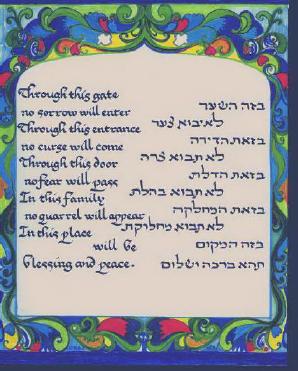 Through this gate
no sorrow will enter
Through this entrance
no curse will come
Through this door
no fear will pass
In this family
no quarrel will appear
In this place
will be
blessing and peace.
בזה השער
לא יבוא צער
בזאת הדירה
לא תבוא צרה
בזאת הדלת
לא תבוא בהלת
בזאת המחלקה
לא תבוא מחליקת
בזה המקום
תהא ברכה ושלום